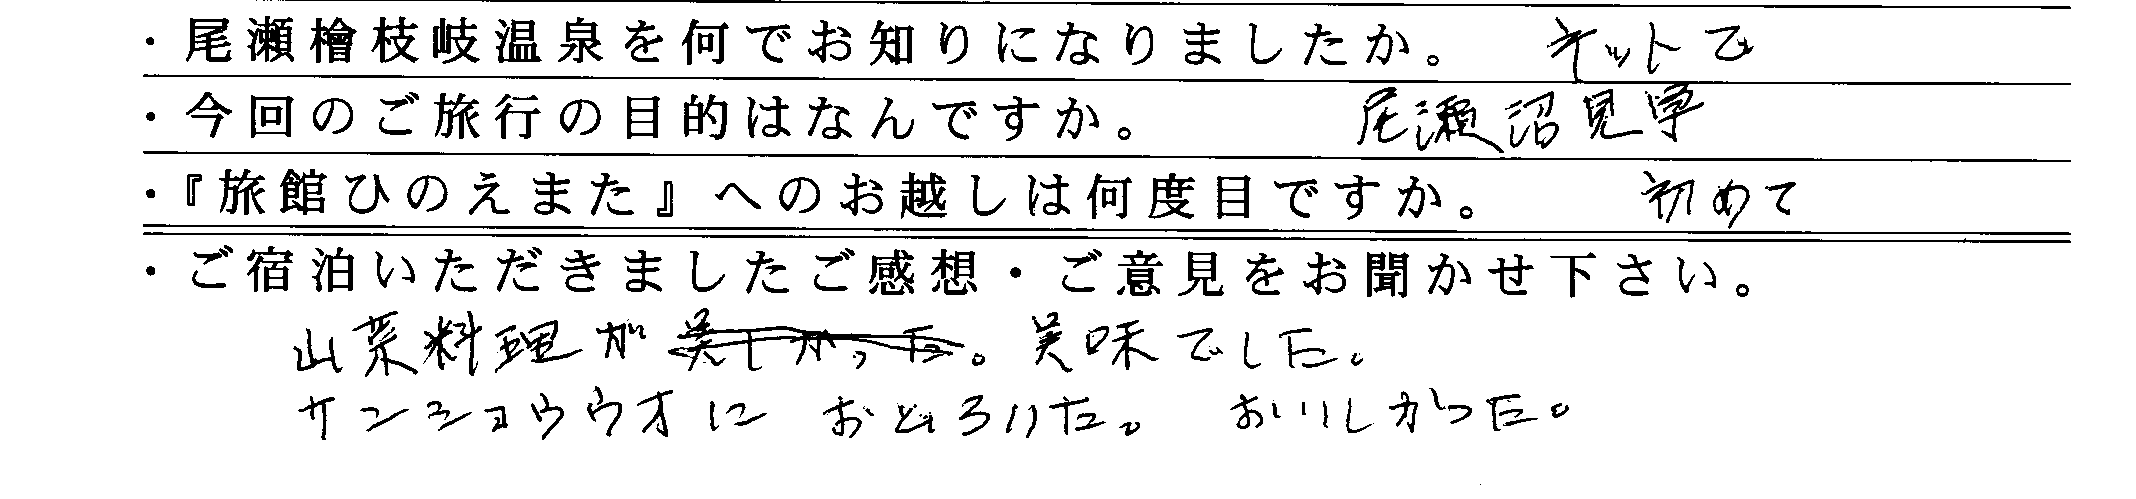 ・尾瀬檜枝岐温泉を何でお知りになりましたか。 ネットで
・今回のご旅行の目的はなんですか。 尾瀬沼見学
・『旅館ひのえまた』へのお越しは何度目ですか。 初めて
・ご宿泊いただきましたご感想・ご意見をお聞かせ下さい。
山菜料理が美しかった。美味でした。
サンショウウオに おどろいた。 おいしかった。